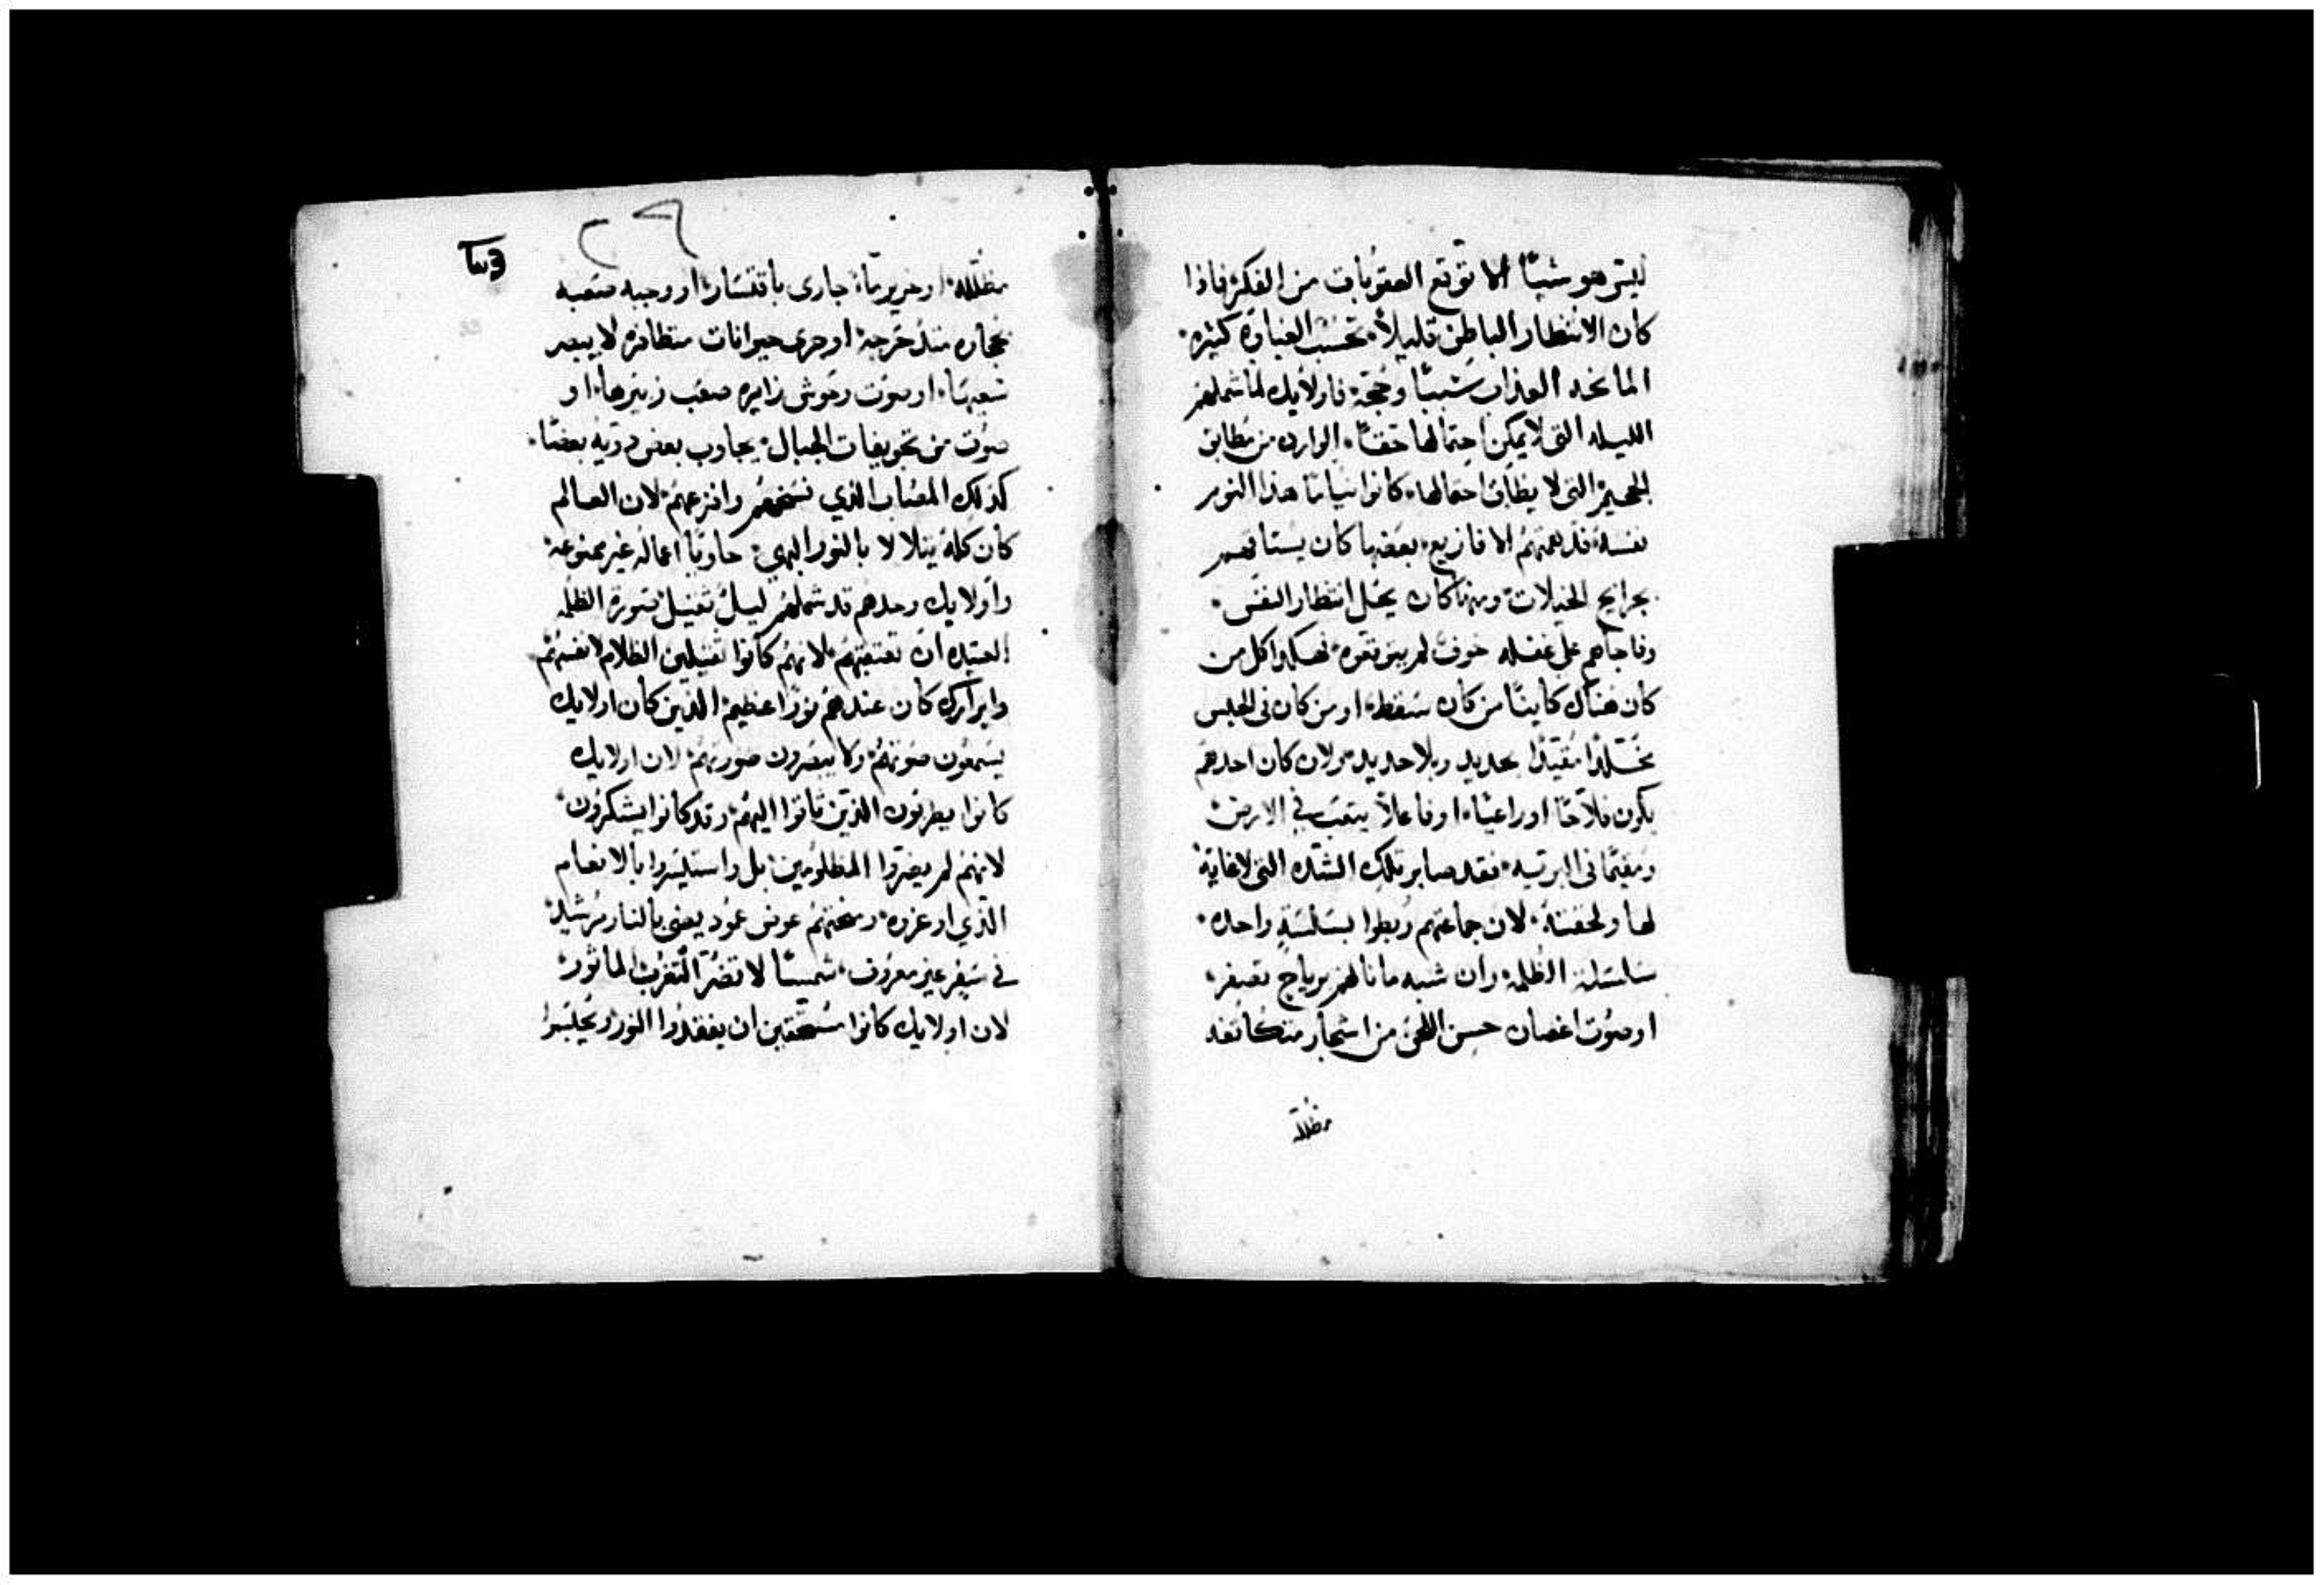 ليس هو شيئًا الا توقع العقوبات من الفكر فاذا
كان الانتظار الباطن قليلاً تحسب الغباوة كثيره
المانحه العذاب سببًا وحجة فاولايك لما شملهم
الليله التي لا يمكن احتمالها حقًا الوارده من مطابق
الجحيم التي لا يطاق احتمالها كانوا نيامًا هذا النوم
نفسه قد همتهم الافازيع بعضها كان يستاقهم
بجرايح الخيلات ومنها كان يحل انتظار النفس
وفاجاهم على غفله خوف لم يتوقعوه فهكذا كل من
كان هناك كاينًا من كان سقط او من كان في الحبس
مقيدًا بحديد وبلا حديد لان كان احدهم
يكون فلاحًا او راعيًا او فاعلاً يتعب في الارض
ومقيمًا في البريه فقد صابر تلك الشده التي لا غاية
لها ولحقته لان جماعتهم ربطوا بسلسلة واحده
سلسلة الظلمه وان شبه ما نالهم برياح تصفر
او صوت اغصان حسن اللحن من اشجار متكاثفه
مظلله
مظلله او خرير ماء جاري باقتسار او وجبه صعبه
بحجاره متدحرجة او جري حيوانات متطافره لا يبصر
سعيها او صوت وحوش زايره صعب زييرها او
صوت من تجويفات الجبال يجاوب بعض دويه بعضًا
كذلك المصاب الذي نسخهم وافزعهم لان العالم
كان كله يتلالا بالنور البهي حاويًا اعماله غير ممنوعة
واولايك وحدهم قد شملهم ليل ثقيل صورة الظلمه
العتيده ان تعتقبهم لانهم كانوا ثقيلين الظلام لانفسهم
وابرارك كان عندهم نورًا عظيم الذين كان اولايك
يسمعون صوتهم ولا يبصرون صورتهم لان اولايك
كانوا يطربون الذين تاتوا اليهم وقد كانوا يشكرون
لانهم لم يضروا المظلومين بل واستليسروا بالانعام
الذي اوعزوه ومنحتهم عوض عمود يضي بالنار مرشدًا
في سفر غير معروف شمسًا لا تضر التغرب الماثور
لان اولايك كانوا مستحقين ان يفقدوا النور ويحبسوا